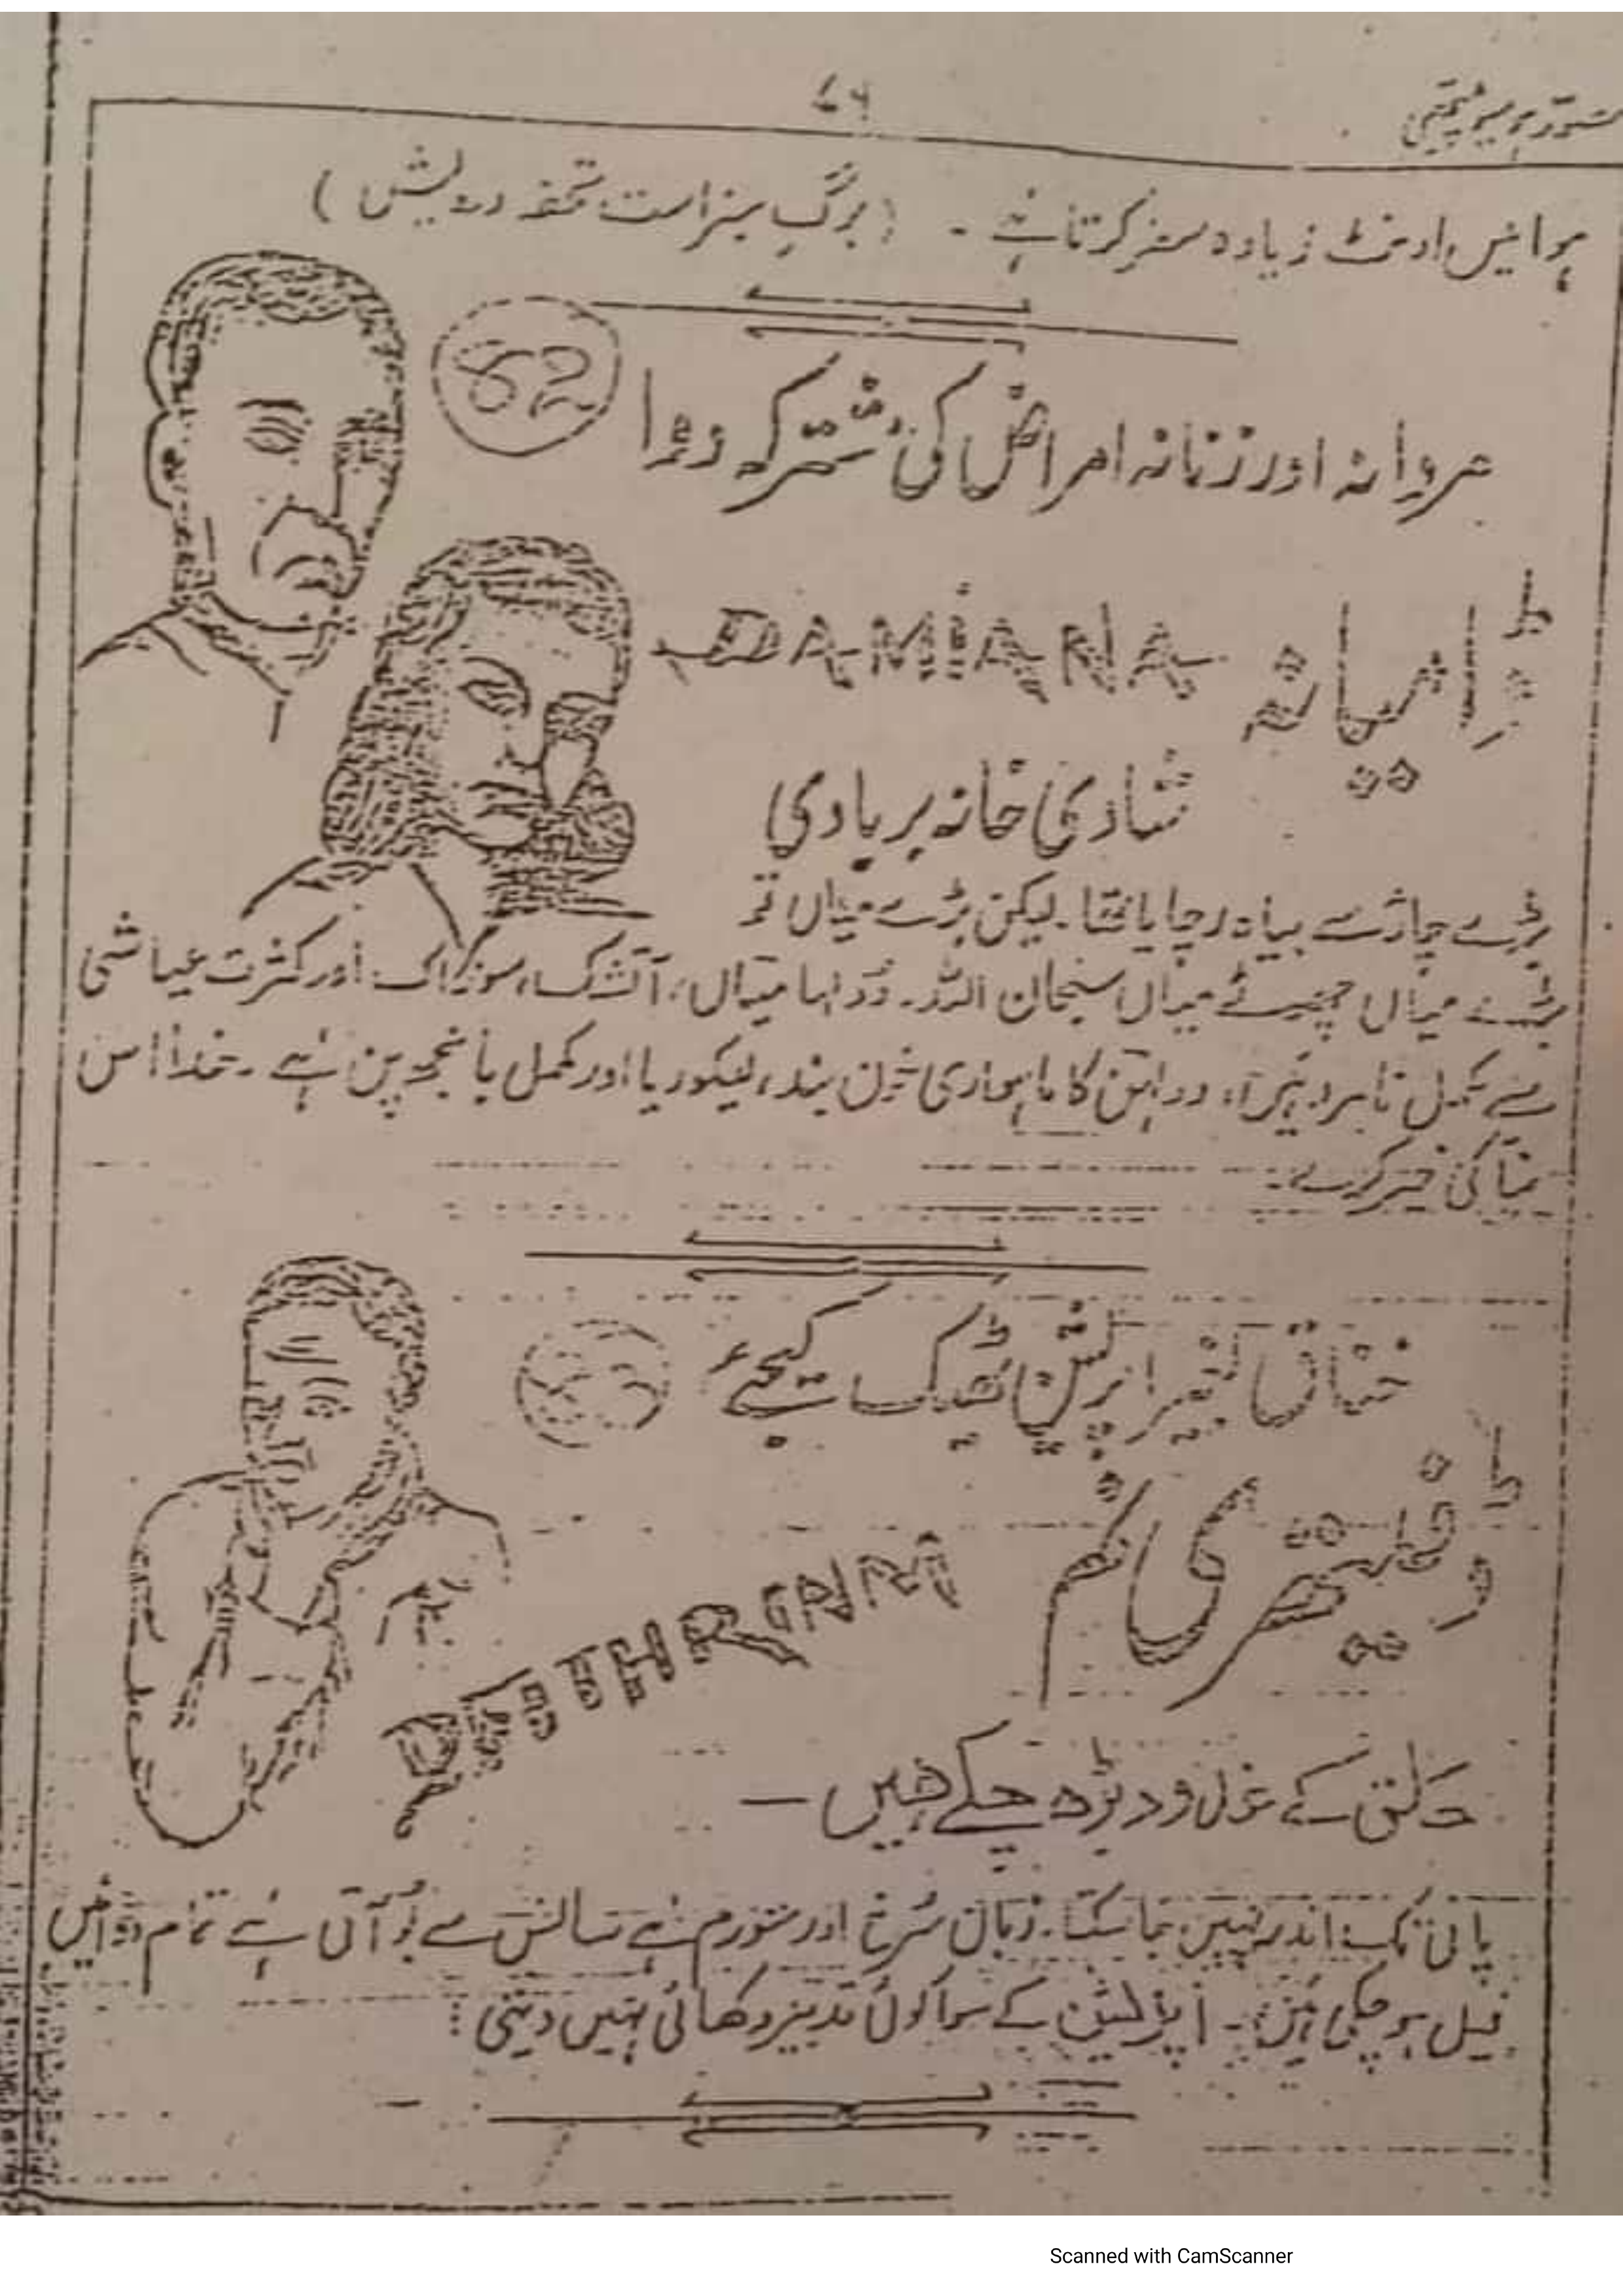 ۷۶
ہوائیں اونٹ زیادہ سفر کرتا ہے ۔ (برگِ سبز است تحفہ درویش)
62
مردانہ اور زنانہ امراض کی مشترکہ دوا
ڈامیانہ DAMIANA
شادی خانہ بربادی
بڑے چاؤ سے بیاہ رچایا تھا۔ لیکن بڑے میاں تو
بڑے میاں چھوٹے میاں سبحان اللہ۔ دولہا میاں، آتشک، سوزاک اور کثرت عیاشی
سے مکمل نامرد ہیں، دولہن کا ماہواری خون بند، لیکوریا اور مکمل بانجھ پن ہے ۔ خدا اس
کی خیر کرے۔
خناق بغیر اپریشن ٹھیک کیجئے
ڈفتھری نم
حلق کے غدود بڑھ چکے ہیں —
پانی تک اندر نہیں جا سکتا۔ زبان سُرخ اور متورم ہے سانس سے بُو آتی ہے تمام دوائیں
فیل ہو چکی ہیں۔ اپریشن کے سوا کوئی تدبیر دکھائی نہیں دیتی :
Scanned with CamScanner